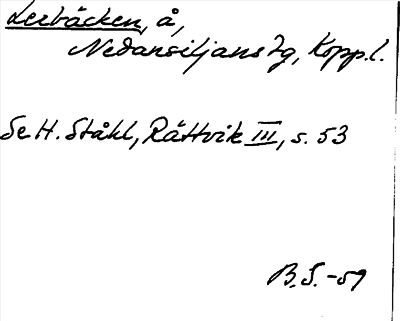 Lerbäcken, å,
Nedansiljans tg, Kopp.l.
Se H. Ståhl, Rättvik III, s. 53
B.S. -59